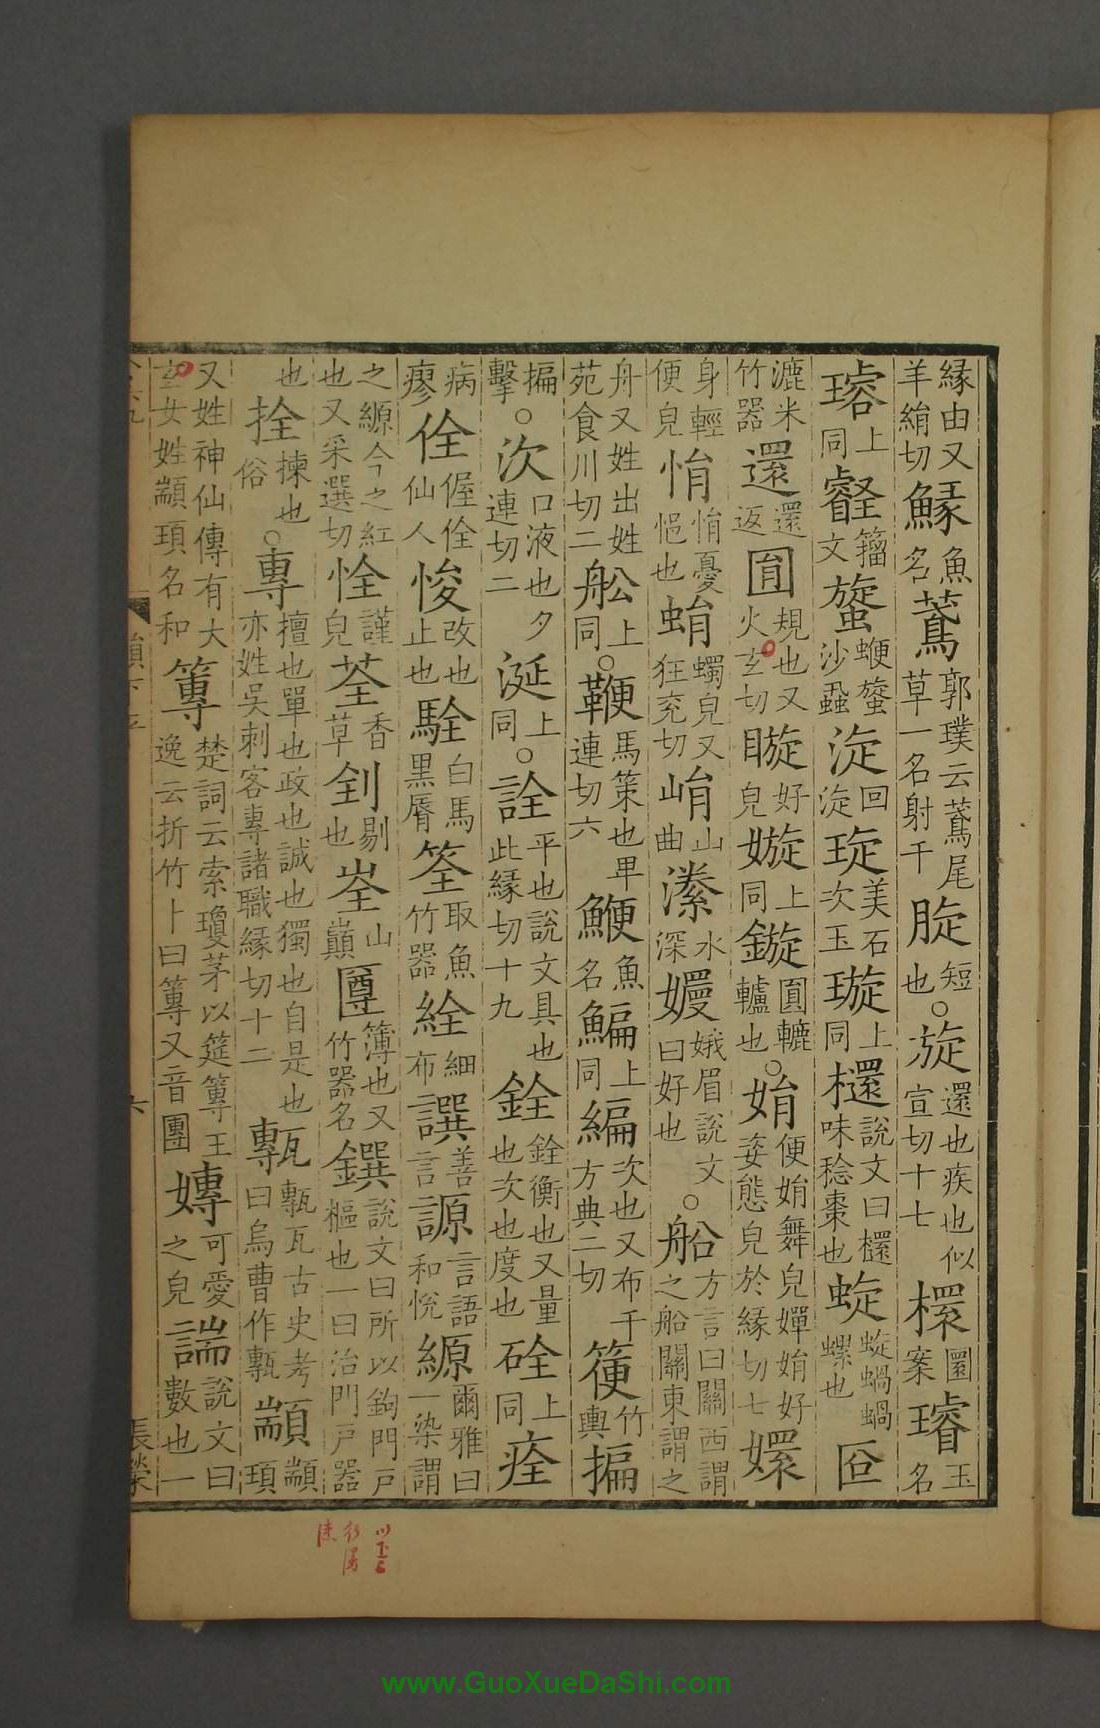 緣由又羊絹切 𩺷 魚名 蔦 郭璞云蔦尾草一名射干 脧 短也○旋 還也疾也似宣切十七 檈 圜案 璿 玉名
璿 上同 叡 籀文 蟞 蜁沙蝨 淀 回淀 琁 美石次玉 璇 上同 檈 說文曰檈味稔棗也 蜁 蜁蝸蝸螺也
漉米竹器 還 還返 圎 規也又火玄切 䁢 好皃 嫙 上同 鏇 圓轆轤也○娟 便娟舞皃嬋娟好姿態皃於緣切七 嬛
身輕便皃 悁 悁憂悒也 蜎 蠋皃又狂兖切 㟨 山曲 潫 水深 嬽 娥眉說文曰好也○船 方言曰關西謂之船關東謂之
舟又姓出姓苑食川切二 舩 上同○鞭 馬策也卑連切六 鯾 魚名 鯿 上同 編 次也又布千方典二切 箯 竹輿 揙
揙擊○次 口液也夕連切二 涎 上同○詮 平也說文具也此緣切十九 銓 銓衡也又量也次也度也 硂 上同 痊
病瘳 佺 偓佺仙人 悛 改也止也 駩 白馬黑脣 筌 取魚竹器 絟 細布 譔 善言 謜 言語和悅 縓 爾雅曰一染謂
之縓今之紅也又采選切 恮 謹皃 荃 香草 剶 剔也 峑 山巔 𥴊 簿也又竹器名 鐉 說文曰所以鉤門戶樞也一曰治門戶器
也 拴 揀也俗○專 擅也單也政也誠也獨也自是也亦姓吳刺客專諸職緣切十二 甎 甎瓦古史考曰烏曹作甎 顓 顓頊
又姓神仙傳有大玄女姓顓頊名和 篿 楚詞云索瓊茅以筳篿王逸云折竹卜曰篿又音團 嫥 可愛之皃 諯 說文曰數也一
六
www.GuoXueDaShi.com